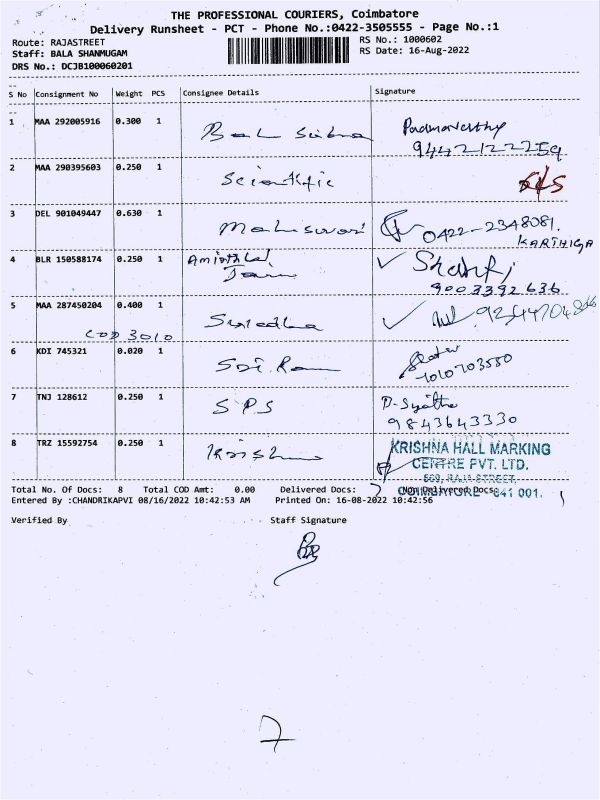 THE PROFESSIONAL COURIERS, Coimbatore
Delivery Runsheet - PCT - Phone No.:0422-3505555 - Page No.:1
Route: RAJASTREET
Staff: BALA SHANMUGAM
DRS No.: DCJB100060201
RS No.: 1000602
RS Date: 16-Aug-2022
S No Consignment No Weight PCS Consignee Details Signature
1 MAA 292005916 0.300 1 Bala Subra
2 MAA 290395603 0.250 1 Scientific
3 DEL 901049447 0.630 1 Maheswari 0422-2348081. KARTHIGA
4 BLR 150588174 0.250 1 Amirthlal Jain 9003392636
5 MAA 287450204 0.400 1
COD 3010
6 KDI 745321 0.020 1 Sri Ram
7 TNJ 128612 0.250 1 SPS 9843643330
8 TRZ 15592754 0.250 1 Krishna
KRISHNA HALL MARKING
CENTRE PVT. LTD.
569, RAJA STREET,
COIMBATORE - 641 001.
Total No. Of Docs: 8 Total COD Amt: 0.00 Delivered Docs: 7 Non Delivered Docs: 1
Entered By :CHANDRIKAPVI 08/16/2022 10:42:53 AM Printed On: 16-08-2022 10:42:56
Verified By Staff Signature
7